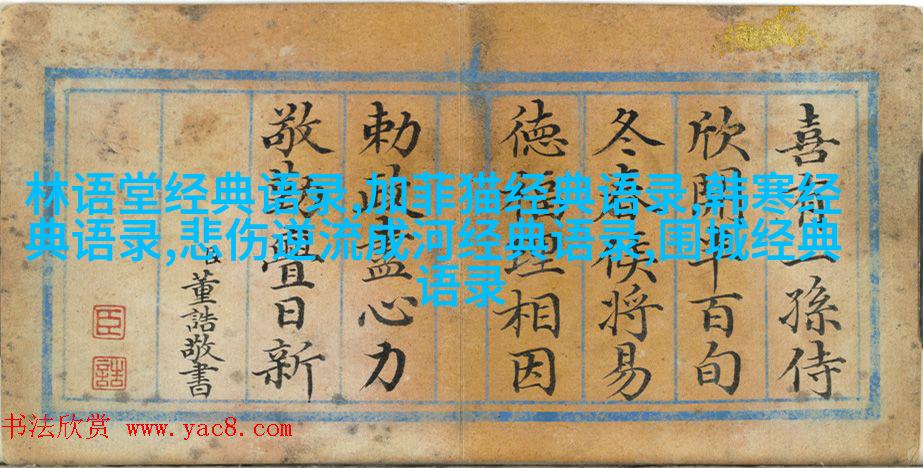 林语堂经典语录,加菲猫经典语录,韩寒经
典语录,悲伤逆流成河经典语录,围城经典
语录
喜一孫侍
欣開百旬
冬春候將易
德福理相因
勅政盡心力
敬疊日新
臣董誥敬書
臣
誥
书法欣赏 www.yac8.com